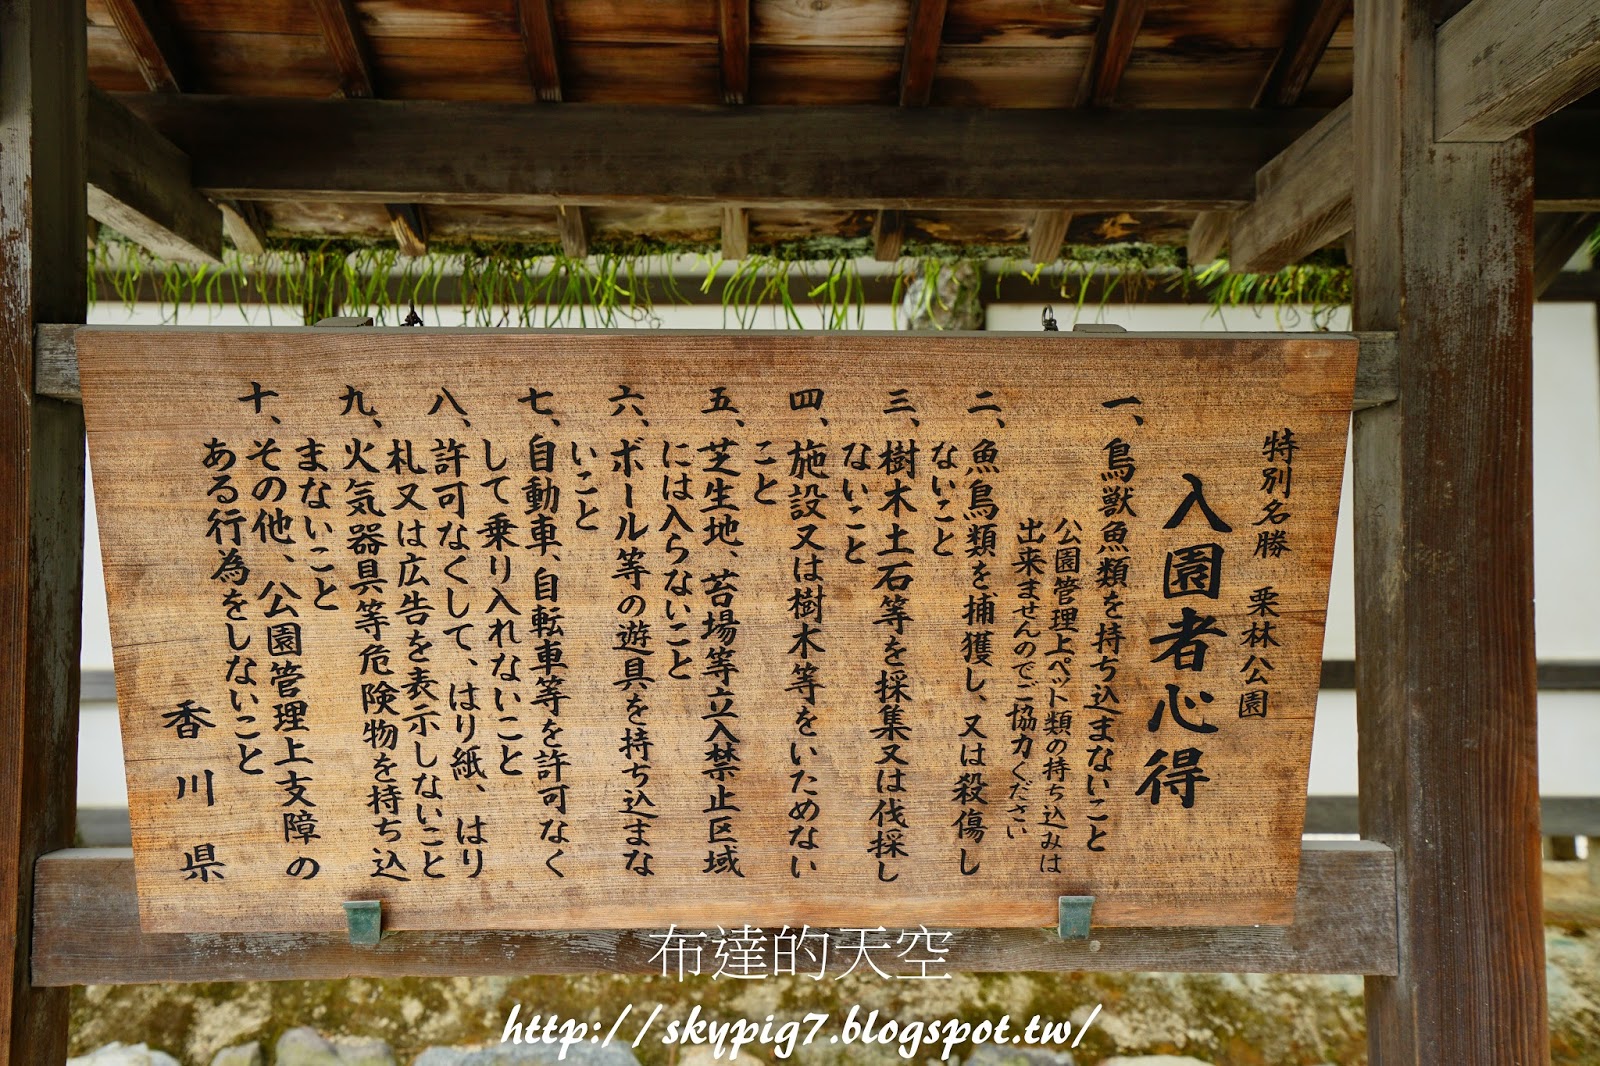 特別名勝 栗林公園
入園者心得
一、鳥獣魚類を持ち込まないこと
公園管理上ペット類の持ち込みは
出来ませんのでご協力ください
二、魚鳥類を捕獲し、又は殺傷し
ないこと
三、樹木土石等を採集又は伐採し
ないこと
四、施設又は樹木等をいためない
こと
五、芝生地、苔場等立入禁止区域
には入らないこと
六、ボール等の遊具を持ち込まな
いこと
七、自動車、自転車等を許可なく
して乗り入れないこと
八、許可なくして、はり紙、はり
札又は広告を表示しないこと
九、火気器具等危険物を持ち込
まないこと
十、その他、公園管理上支障の
ある行為をしないこと
香川県
布達的天空
http://skypig7.blogspot.tw/